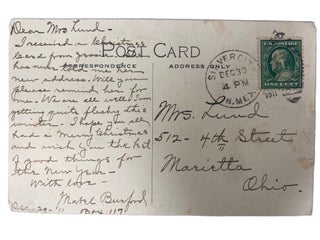 POST CARD
CORRESPONDENCE
ADDRESS ONLY
Dear Mrs Lund-
I received a
card from
has not me her
new address. Will you
please remind her for
me. We are all well. I'm
getting quite fleshy this
winter. I hope you all
had a Merry Christmas
and wish you the lot
of good things for
the New Year-
With love-
Mabel Burford
Dec. 29-'11 Box 117
SILVER CITY
DEC 30
4 PM
N. MEX.
1911
ONE CENT
Mrs. Lund
512-4th Street
Marietta
Ohio.